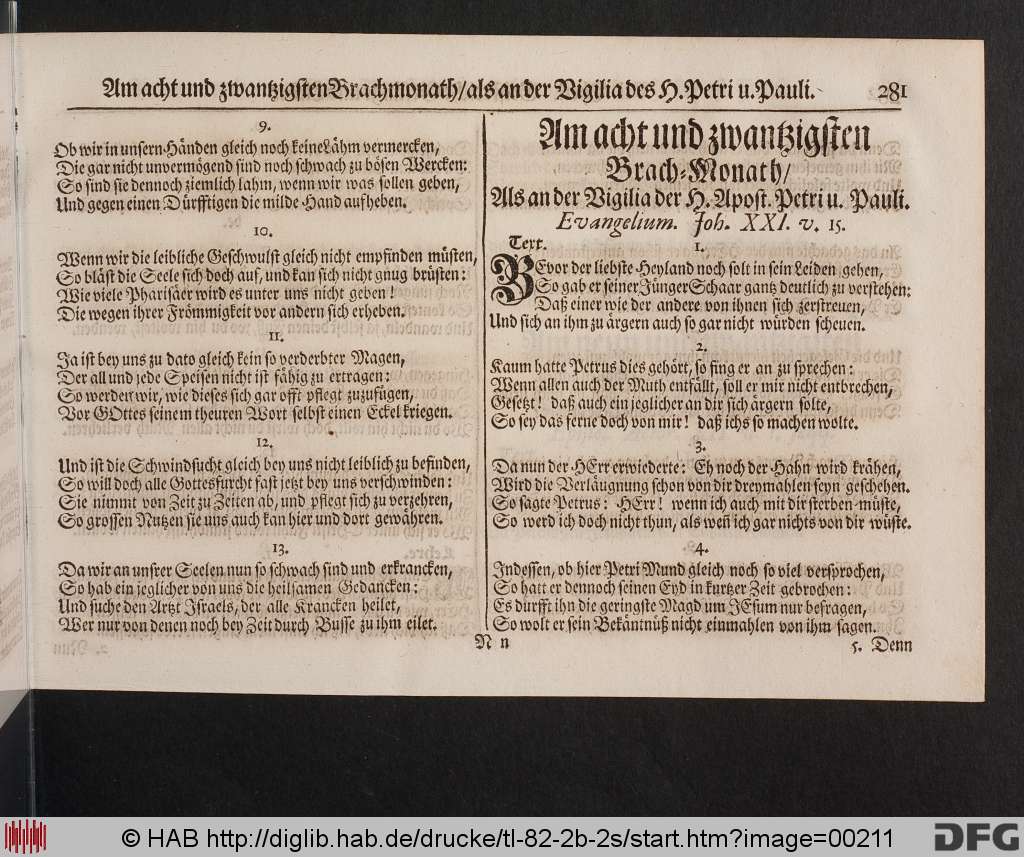 Am acht und zwantzigsten Brachmonath/ als an der Vigilia des H. Petri u. Pauli. 281
9.
Ob wir in unsern Händen gleich noch keine Lähm vermercken,
Die gar nicht unvermögend sind noch schwach zu bösen Wercken:
So sind sie dennoch ziemlich lahm, wenn wir was sollen geben,
Und gegen einen Dürfftigen die milde Hand aufheben.
10.
Wenn wir die leibliche Geschwulst gleich nicht empfinden müsten,
So bläst die Seele sich doch auf, und kan sich nicht gnug brüsten:
Wie viele Pharisäer wird es unter uns nicht geben!
Die wegen ihrer Frömmigkeit vor andern sich erheben.
11.
Ja ist bey uns zu dato gleich kein so verderbter Magen,
Der all und jede Speisen nicht ist fähig zu ertragen:
So werden wir, wie dieses sich gar offt pflegt zuzufügen,
Vor GOttes seinem theuren Wort selbst einen Eckel kriegen.
12.
Und ist die Schwindsucht gleich bey uns nicht leiblich zu befinden,
So will doch alle Gottesfurcht fast jetzt bey uns verschwinden:
Sie nimmt von Zeit zu Zeiten ab, und pflegt sich zu verzehren,
So grossen Nutzen sie uns auch kan hier und dort gewähren.
13.
Da wir an unsrer Seelen nun so schwach sind und erkrancken,
So hab ein jeglicher von uns die heilsamen Gedancken:
Und suche den Artzt Israels, der alle Krancken heilet,
Wer nur von denen noch bey Zeit durch Busse zu ihm eilet.
Am acht und zwantzigsten
Brach-Monath/
Als an der Vigilia der H. Apost. Petri u. Pauli.
Evangelium. Joh. XXI. v. 15.
Text. 1.
BEvor der liebste Heyland noch solt in sein Leiden gehen,
So gab er seiner Jünger Schaar gantz deutlich zu verstehen:
Daß einer wie der andere von ihnen sich zerstreuen,
Und sich an ihm zu ärgern auch so gar nicht würden scheuen.
2.
Kaum hatte Petrus dies gehört, so fing er an zu sprechen:
Wenn allen auch der Muth entfällt, soll er mir nicht entbrechen,
Gesetzt! daß auch ein jeglicher an dir sich ärgern solte,
So sey das ferne doch von mir! daß ichs so machen wolte.
3.
Da nun der HErr erwiederte: Eh noch der Hahn wird krähen,
Wird die Verläugnung schon von dir dreymahlen seyn geschehen.
So sagte Petrus: HErr! wenn ich auch mit dir sterben müste,
So werd ich doch nicht thun, als weñ ich gar nichts von dir wüste.
4.
Indessen, ob hier Petri Mund gleich noch so viel versprochen,
So hatt er dennoch seinen Eyd in kurtzer Zeit gebrochen:
Es durfft ihn die geringste Magd um JEsum nur befragen,
So wolt er sein Bekäntnüß nicht einmahlen von ihm sagen.
N n
5. Denn
© HAB http://diglib.hab.de/drucke/tl-82-2b-2s/start.htm?image=00211
DFG